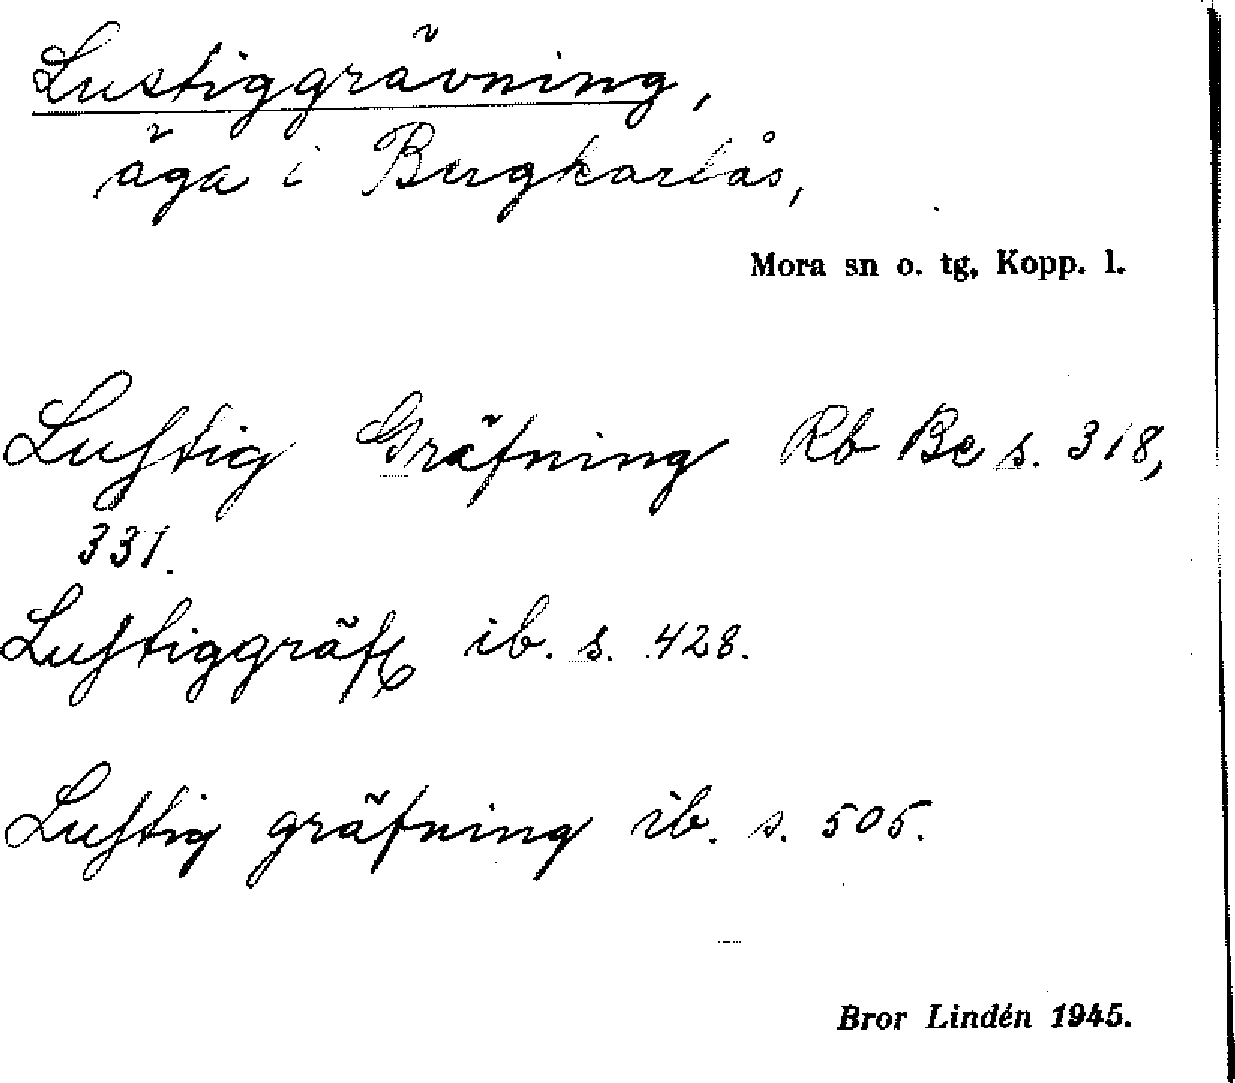 Lustiggrävning,
äga i Bergkarlås,
Mora sn o. tg, Kopp. l.
Luſtig Gräfning Rb Be s. 318,
331.
Luſtiggräf ib. s. 428.
Luſtig gräfning ib. s. 505.
Bror Lindén 1945.